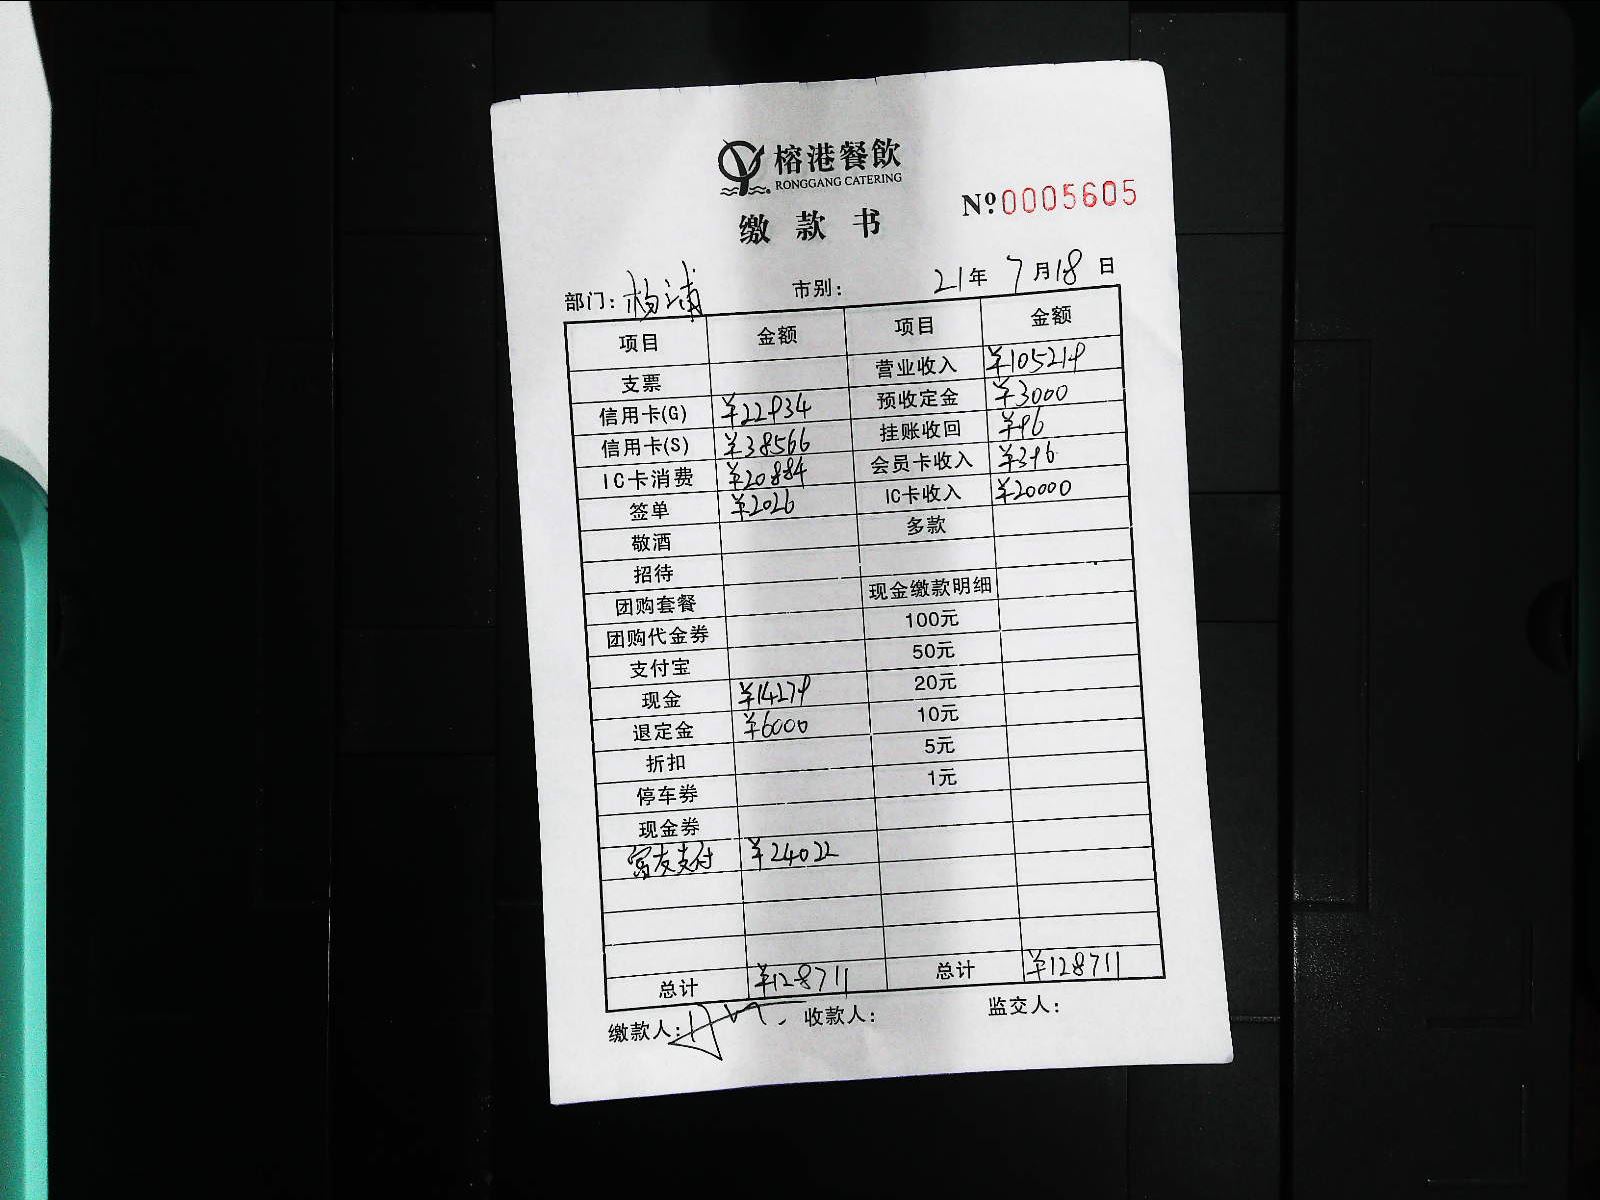 榕港餐飲
RONGGANG CATERING
缴款书
Nº 0005605
部门: 杨浦 市别: 21年 7月18日
项目 金额 项目 金额
支票 营业收入 ¥105219
信用卡(G) ¥22934 预收定金 ¥3000
信用卡(S) ¥38566 挂账收回 ¥96
IC卡消费 ¥20884 会员卡收入 ¥396
签单 ¥2026 IC卡收入 ¥20000
敬酒 多款
招待
团购套餐 现金缴款明细
团购代金券 100元
支付宝 50元
现金 ¥14279 20元
退定金 ¥6000 10元
折扣 5元
停车券 1元
现金券
富友支付 ¥24022
总计 ¥128711 总计 ¥128711
缴款人: 收款人: 监交人: